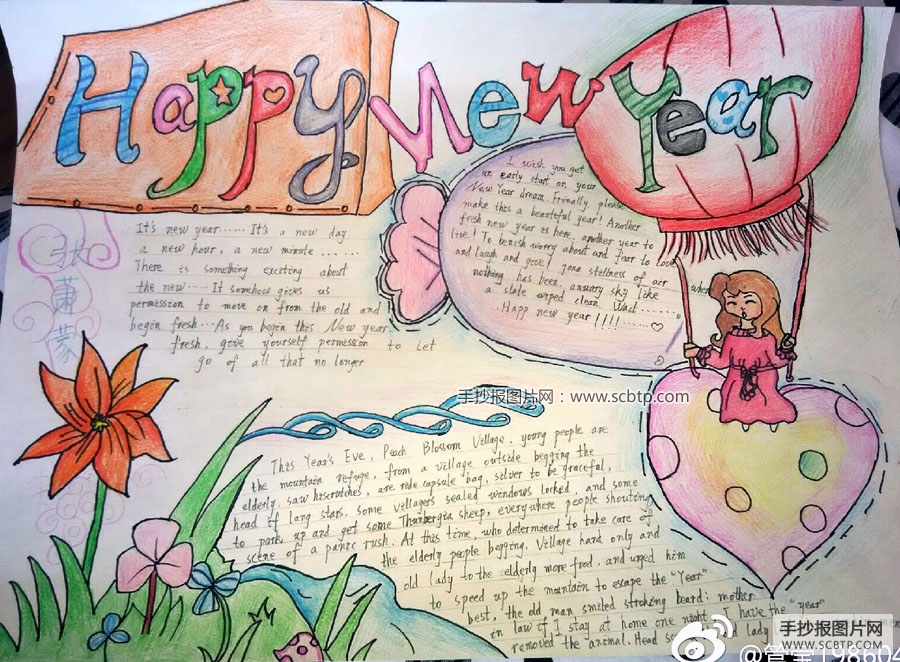 Happy New Year
It's new year...... It's a new day
a new hour, a new minute ......
There is something exciting about
the new.....It somehow gives us
permission to move on from the old and
begin fresh...As you begin this New year
fresh, give yourself permission to let
go of all that no longer
I wish you get
an early start on your
New Year dream. Frienally, please
make this a beautiful year! Another
fresh new year is here, another year to
live! To banish worry about and fear to love
and laugh and give! gona stellness of air where
nothing has been, anuary sky like
a slate wiped clean. Wait........
Happ new year!!!!......
张
萧
蒙
手抄报图片网：www.scbtp.com
This Year's Eve, Peach Blossom Village, young people are
the mountain refuge, from a village outside begging the
elderly, saw his crutches, are ride capsule bag, silver to be graceful,
head if lang stars. Some villagers sealed windows locked, and some
to park up and get some Thunbergia sheep, everywhere people shouting
scene of a panic rush. At this time, who determined to take care of
the elderly people begging. Village hard only and
old lady to the elderly more food, and urged him
to speed up the mountain to escape the "Year"
best, the old man smiled stroking beard: mother
in law if I stay at home one night, I have the "year"
removed the "animal. Head lady
手抄报图片网
SCBTP.COM